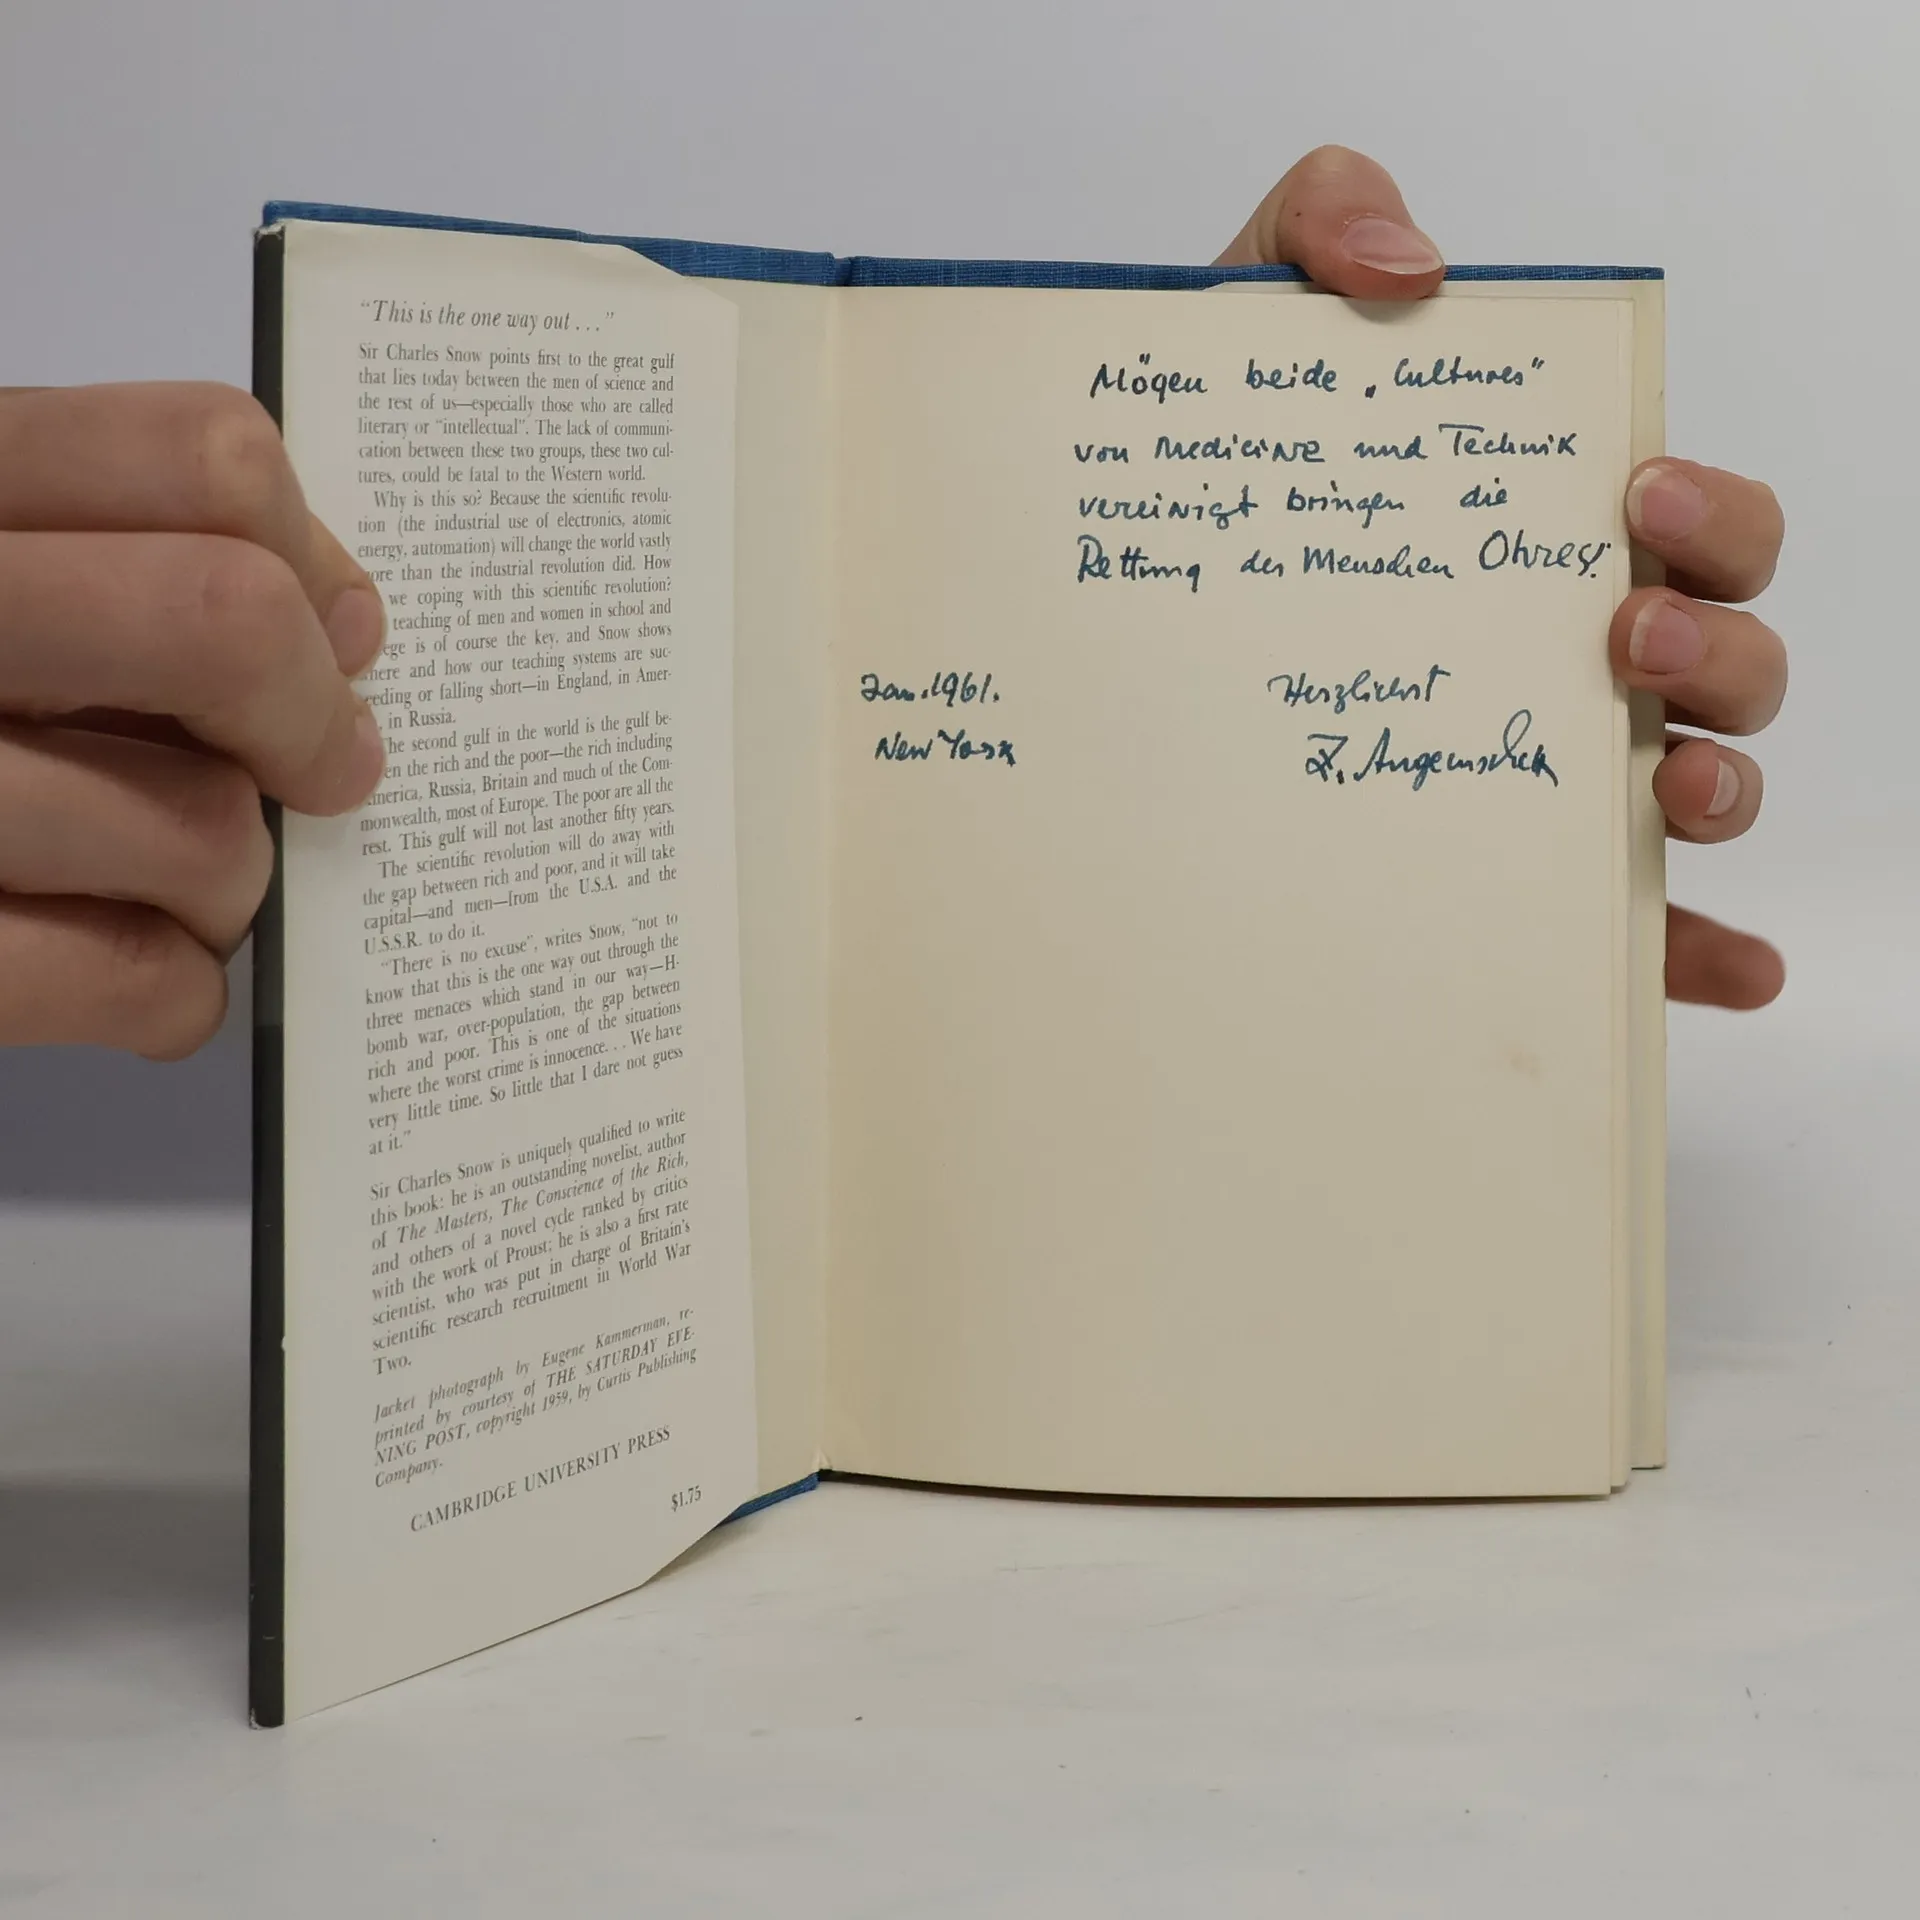 “This is the one way out . . .”
Sir Charles Snow points first to the great gulf
that lies today between the men of science and
the rest of us—especially those who are called
literary or “intellectual”. The lack of communi-
cation between these two groups, these two cul-
tures, could be fatal to the Western world.
Why is this so? Because the scientific revolu-
tion (the industrial use of electronics, atomic
energy, automation) will change the world vastly
ore than the industrial revolution did. How
we coping with this scientific revolution?
teaching of men and women in school and
ege is of course the key, and Snow shows
here and how our teaching systems are suc-
ceeding or falling short—in England, in Amer-
, in Russia.
he second gulf in the world is the gulf be-
en the rich and the poor—the rich including
merica, Russia, Britain and much of the Com-
monwealth, most of Europe. The poor are all the
rest. This gulf will not last another fifty years.
The scientific revolution will do away with
the gap between rich and poor, and it will take
capital—and men—from the U.S.A. and the
U.S.S.R. to do it.
“There is no excuse”, writes Snow, “not to
know that this is the one way out through the
three menaces which stand in our way—H-
bomb war, over-population, the gap between
rich and poor. This is one of the situations
where the worst crime is innocence. . . We have
very little time. So little that I dare not guess
at it.”
Sir Charles Snow is uniquely qualified to write
this book: he is an outstanding novelist, author
of The Masters, The Conscience of the Rich,
and others of a novel cycle ranked by critics
with the work of Proust; he is also a first rate
scientist, who was put in charge of Britain's
scientific research recruitment in World War
Two.
Jacket photograph by Eugene Kammerman, re-
printed by courtesy of THE SATURDAY EVE-
NING POST, copyright 1959, by Curtis Publishing
Company.
CAMBRIDGE UNIVERSITY PRESS
$1.75
Mögen beide „Cultures”
von Medicine und Technik
vereinigt bringen die
Rettung des Menschen Ohres!
Jan. 1961.
New York
Herzlichst